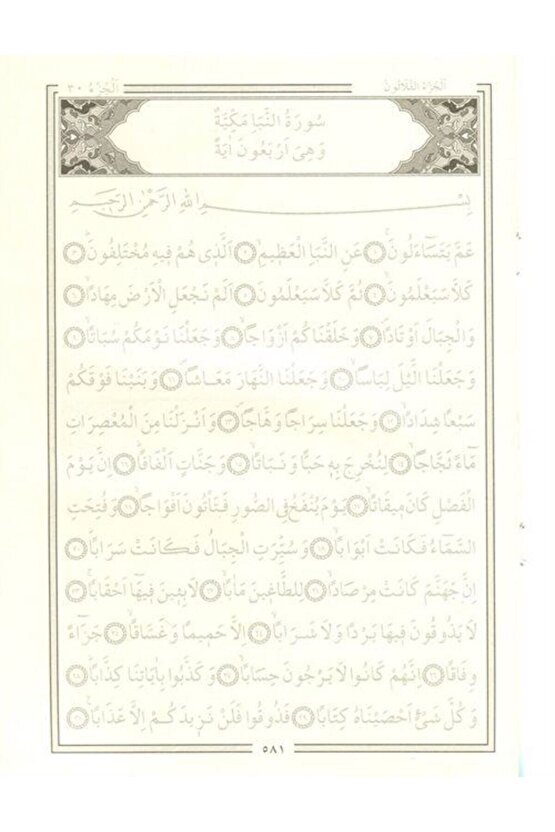 اَلْجُزْءُ الثَّلَاثُونَ
اَلْجُزْءُ ٣٠
سُورَةُ النَّبَاِ مَكِّيَّةٌ
وَهِىَ اَرْبَعُونَ اٰيَةً
بِسْمِ اللّٰهِ الرَّحْمٰنِ الرَّحٖيمِ
عَمَّ يَتَسَٓاءَلُونَۚ ﴿١﴾ عَنِ النَّبَاِ الْعَظٖيمِۙ ﴿٢﴾ اَلَّذٖى هُمْ فٖيهِ مُخْتَلِفُونَۜ ﴿٣﴾
كَلَّا سَيَعْلَمُونَۙ ﴿٤﴾ ثُمَّ كَلَّا سَيَعْلَمُونَ ﴿٥﴾ اَلَمْ نَجْعَلِ الْاَرْضَ مِهَادًاۙ ﴿٦﴾
وَالْجِبَالَ اَوْتَادًاۖ ﴿٧﴾ وَخَلَقْنَاكُمْ اَزْوَاجًاۙ ﴿٨﴾ وَجَعَلْنَا نَوْمَكُمْ سُبَاتًاۙ ﴿٩﴾
وَجَعَلْنَا الَّيْلَ لِبَاسًاۙ ﴿١٠﴾ وَجَعَلْنَا النَّهَارَ مَعَاشًاۖ ﴿١١﴾ وَبَنَيْنَا فَوْقَكُمْ
سَبْعًا شِدَادًاۙ ﴿١٢﴾ وَجَعَلْنَا سِرَاجًا وَهَّاجًاۖ ﴿١٣﴾ وَاَنْزَلْنَا مِنَ الْمُعْصِرَاتِ
مَٓاءً ثَجَّاجًاۙ ﴿١٤﴾ لِنُخْرِجَ بِهٖ حَبًّا وَنَبَاتًاۙ ﴿١٥﴾ وَجَنَّاتٍ اَلْفَافًاۜ ﴿١٦﴾ اِنَّ يَوْمَ
الْفَصْلِ كَانَ مٖيقَاتًاۙ ﴿١٧﴾ يَوْمَ يُنْفَخُ فِى الصُّورِ فَتَأْتُونَ اَفْوَاجًاۙ ﴿١٨﴾ وَفُتِحَتِ
السَّمَٓاءُ فَكَانَتْ اَبْوَابًاۙ ﴿١٩﴾ وَسُيِّرَتِ الْجِبَالُ فَكَانَتْ سَرَابًاۜ ﴿٢٠﴾
اِنَّ جَهَنَّمَ كَانَتْ مِرْصَادًاۙ ﴿٢١﴾ لِلطَّاغٖينَ مَاٰبًاۙ ﴿٢٢﴾ لَابِثٖينَ فٖيهَٓا اَحْقَابًاۚ ﴿٢٣﴾
لَا يَذُوقُونَ فٖيهَا بَرْدًا وَلَا شَرَابًاۙ ﴿٢٤﴾ اِلَّا حَمٖيمًا وَغَسَّاقًاۙ ﴿٢٥﴾ جَزَٓاءً
وِفَاقًاۜ ﴿٢٦﴾ اِنَّهُمْ كَانُوا لَا يَرْجُونَ حِسَابًاۙ ﴿٢٧﴾ وَكَذَّبُوا بِاٰيَاتِنَا كِذَّابًاۜ ﴿٢٨﴾
وَكُلَّ شَىْءٍ اَحْصَيْنَاهُ كِتَابًاۙ ﴿٢٩﴾ فَذُوقُوا فَلَنْ نَزٖيدَكُمْ اِلَّا عَذَابًا۟ ﴿٣٠﴾
٥٨١